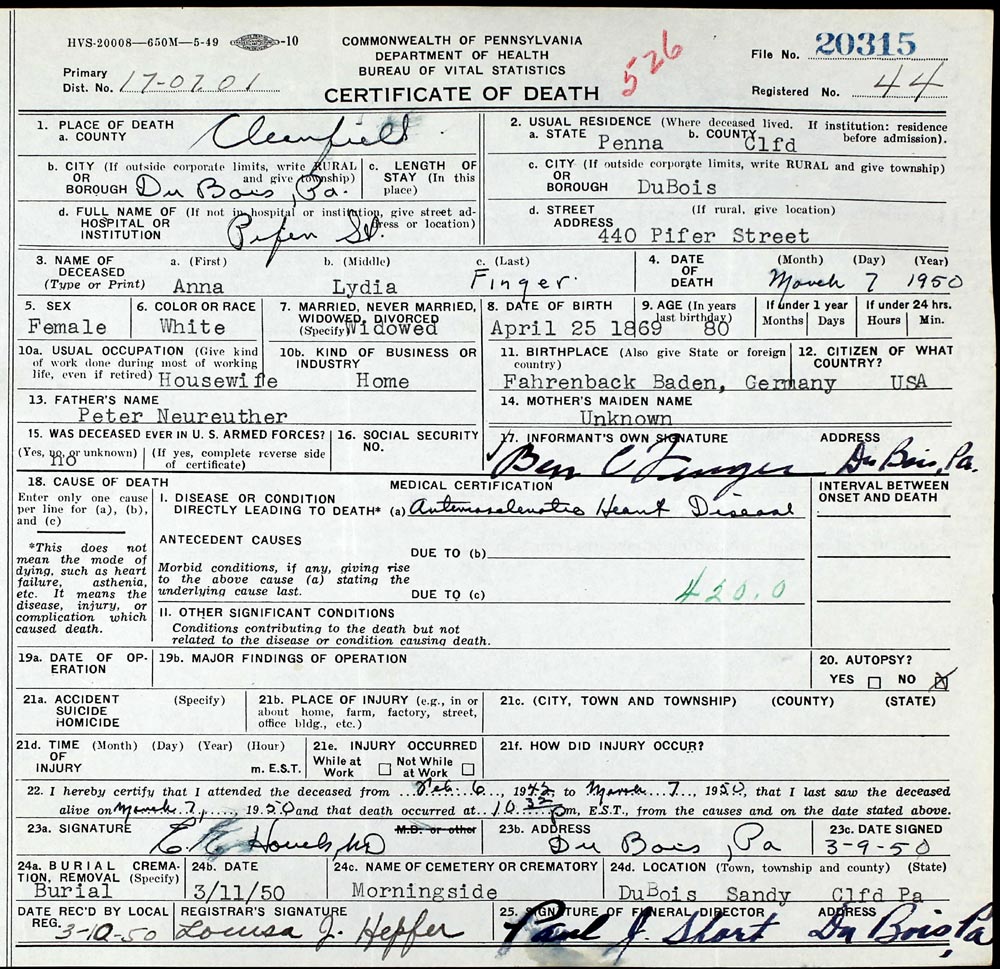 HVS-20008—650M—5-49 -10
COMMONWEALTH OF PENNSYLVANIA
DEPARTMENT OF HEALTH
BUREAU OF VITAL STATISTICS
CERTIFICATE OF DEATH
526
File No. 20315
Primary
Dist. No. 17-07.01
Registered No. 44
1. PLACE OF DEATH
a. COUNTY Clearfield
2. USUAL RESIDENCE (Where deceased lived. If institution: residence before admission).
a. STATE Penna b. COUNTY Clfd
b. CITY (If outside corporate limits, write RURAL
OR and give township)
BOROUGH Du Bois, Pa.
c. LENGTH OF
STAY (In this
place)
c. CITY (If outside corporate limits, write RURAL and give township)
OR
BOROUGH DuBois
d. FULL NAME OF (If not in hospital or institution, give street ad-
HOSPITAL OR dress or location)
INSTITUTION Pifer St.
d. STREET (If rural, give location)
ADDRESS 440 Pifer Street
3. NAME OF a. (First) b. (Middle) c. (Last)
DECEASED
(Type or Print) Anna Lydia Finger.
4. DATE (Month) (Day) (Year)
OF
DEATH March 7 1950
5. SEX
Female
6. COLOR OR RACE
White
7. MARRIED, NEVER MARRIED,
WIDOWED, DIVORCED
(Specify) Widowed
8. DATE OF BIRTH
April 25 1869
9. AGE (In years
last birthday) 80
If under 1 year
Months Days
If under 24 hrs.
Hours Min.
10a. USUAL OCCUPATION (Give kind
of work done during most of working
life, even if retired) Housewife
10b. KIND OF BUSINESS OR
INDUSTRY
Home
11. BIRTHPLACE (Also give State or foreign
country)
Fahrenback Baden, Germany
12. CITIZEN OF WHAT
COUNTRY?
USA
13. FATHER'S NAME
Peter Neureuther
14. MOTHER'S MAIDEN NAME
Unknown
15. WAS DECEASED EVER IN U. S. ARMED FORCES?
(Yes, no, or unknown) (If yes, complete reverse side
no of certificate)
16. SOCIAL SECURITY
NO.
17. INFORMANT'S OWN SIGNATURE ADDRESS
Ben C Finger Du Bois, Pa.
18. CAUSE OF DEATH
Enter only one cause
per line for (a), (b),
and (c)
*This does not
mean the mode of
dying, such as heart
failure, asthenia,
etc. It means the
disease, injury, or
complication which
caused death.
MEDICAL CERTIFICATION
I. DISEASE OR CONDITION
DIRECTLY LEADING TO DEATH* (a) Arteriosclerotic Heart Disease
ANTECEDENT CAUSES
DUE TO (b)
Morbid conditions, if any, giving rise
to the above cause (a) stating the
underlying cause last.
DUE TO (c) 420.0
II. OTHER SIGNIFICANT CONDITIONS
Conditions contributing to the death but not
related to the disease or condition causing death.
INTERVAL BETWEEN
ONSET AND DEATH
19a. DATE OF OP-
ERATION
19b. MAJOR FINDINGS OF OPERATION
20. AUTOPSY?
YES NO X
21a. ACCIDENT (Specify)
SUICIDE
HOMICIDE
21b. PLACE OF INJURY (e.g., in or
about home, farm, factory, street,
office bldg., etc.)
21c. (CITY, TOWN AND TOWNSHIP) (COUNTY) (STATE)
21d. TIME (Month) (Day) (Year) (Hour)
OF
INJURY m. E.S.T.
21e. INJURY OCCURRED
While at Not While
Work at Work
21f. HOW DID INJURY OCCUR?
22. I hereby certify that I attended the deceased from Feb. 6, 1942, to March 7, 1950, that I last saw the deceased
alive on March 7, 1950 and that death occurred at 10 32 pm, E.S.T., from the causes and on the date stated above.
23a. SIGNATURE M.D. or other
23b. ADDRESS
Du Bois, Pa
23c. DATE SIGNED
3-9-50
24a. BURIAL CREMA-
TION, REMOVAL (Specify)
Burial
24b. DATE
3/11/50
24c. NAME OF CEMETERY OR CREMATORY
Morningside
24d. LOCATION (Town, township or county) (State)
DuBois Sandy Clfd Pa
DATE REC'D BY LOCAL
REG. 3-10-50
REGISTRAR'S SIGNATURE
Louisa J. Hepfer
25. SIGNATURE OF FUNERAL DIRECTOR ADDRESS
Paul J. Short Du Bois, Pa